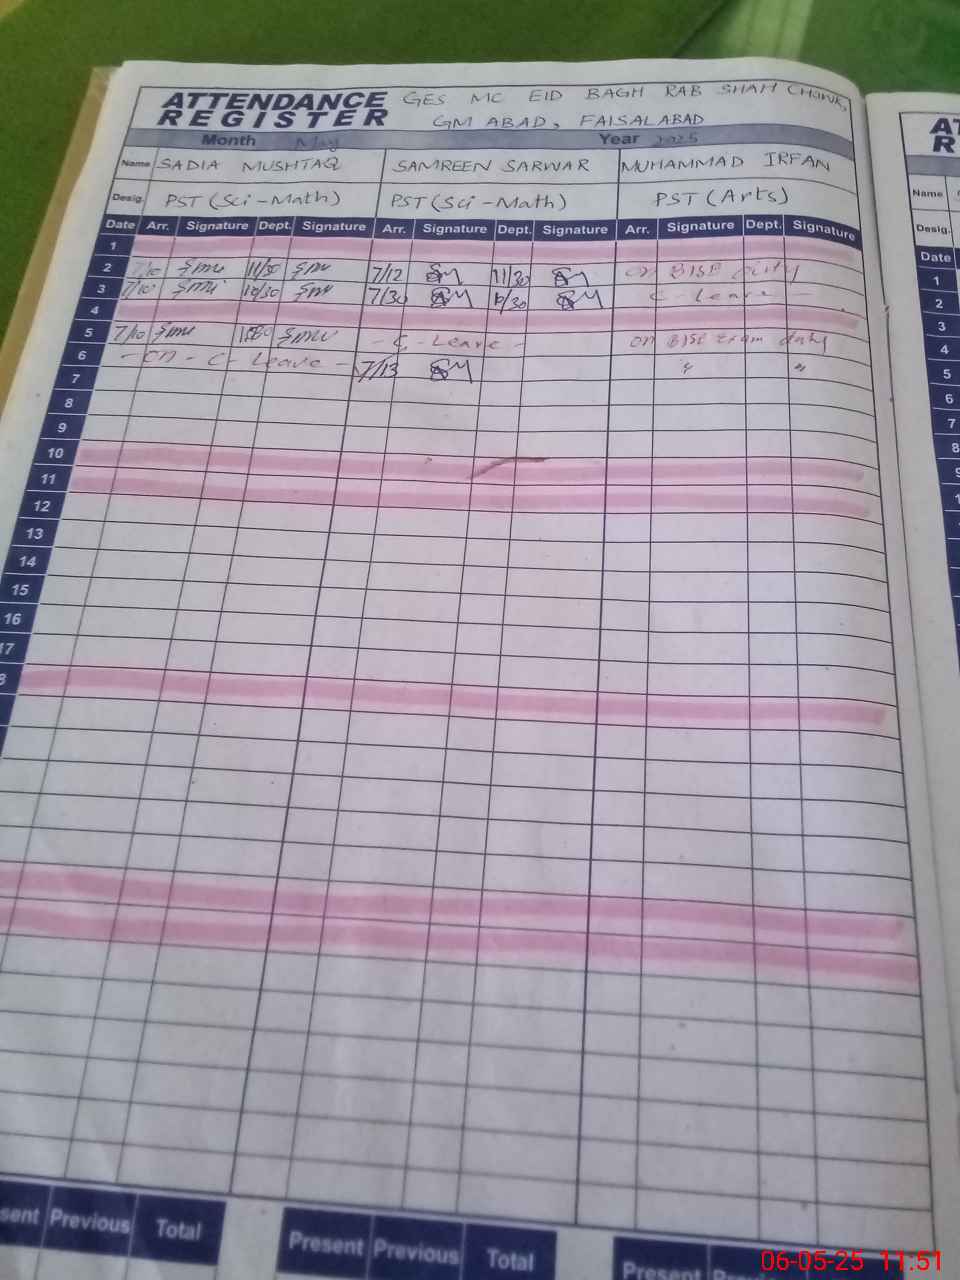 ATTENDANCE REGISTER GES MC EID BAGH RAB SHAH CHOWK,
GM ABAD, FAISALABAD
Month May Year 2025
Name SADIA MUSHTAQ SAMREEN SARWAR MUHAMMAD IRFAN
Desig. PST (Sci-Math) PST (Sci-Math) PST (Arts)
Date Arr. Signature Dept. Signature Arr. Signature Dept. Signature Arr. Signature Dept. Signature
1
2 7/10 11/30 7/12 11/30 on BISE duty
3 7/10 10/30 7/30 10/30 C-Leave -
4
5 7/10 - C-Leave - on BISE exam duty
6 - on - C - Leave - 7/13 " "
7
8
9
10
11
12
13
14
15
16
17
8
sent Previous Total Present Previous Total Present
AT
R
Name
Desig.
Date
1
2
3
4
5
6
7
8
06-05-25 11:51